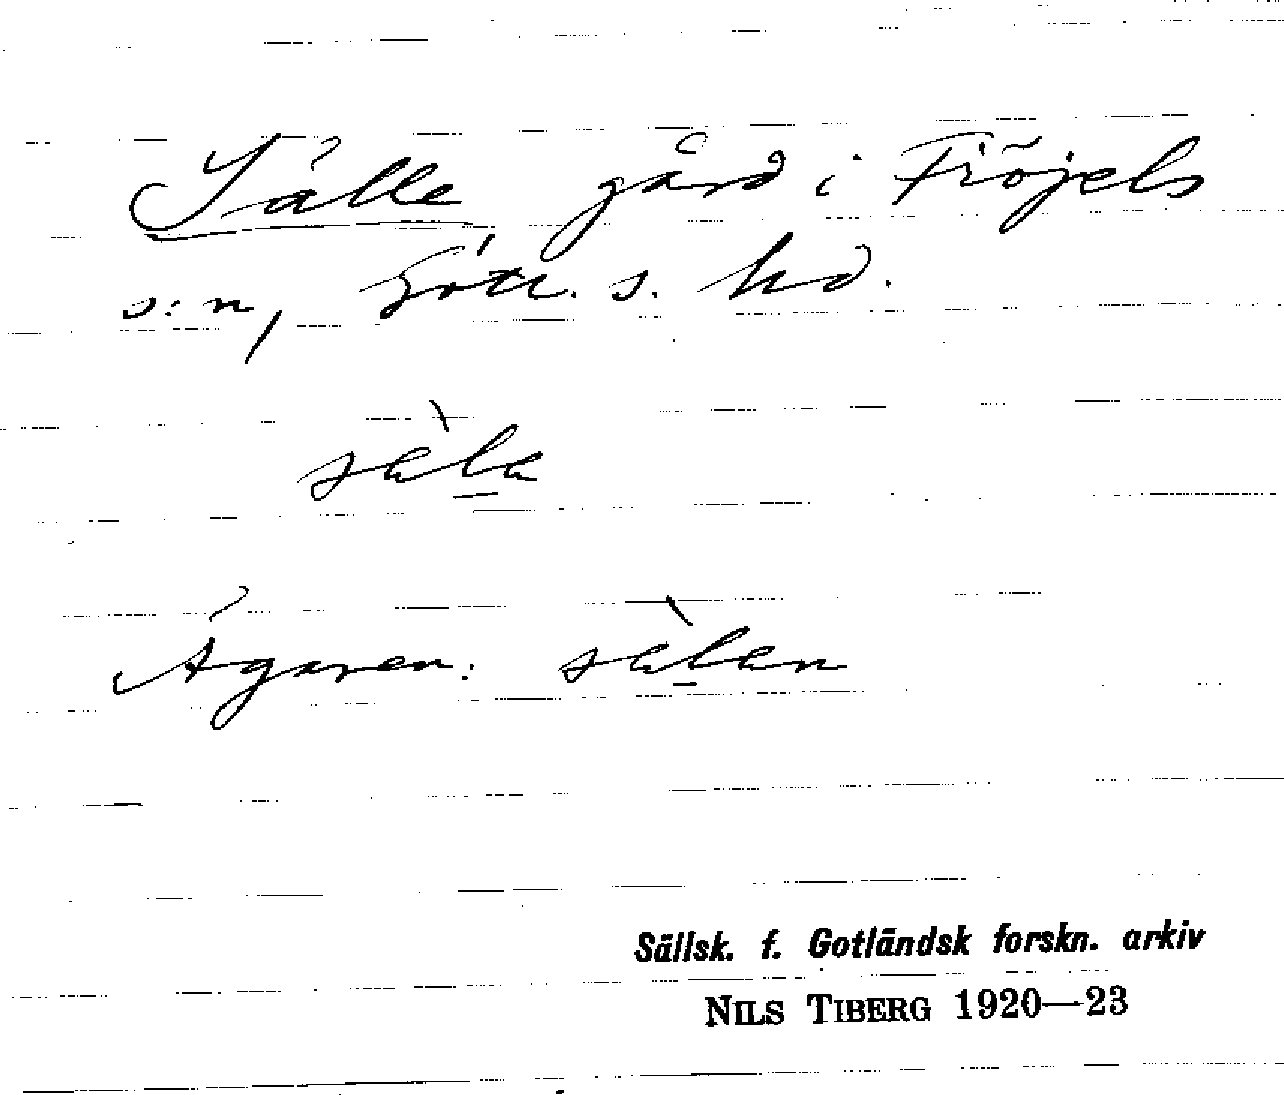 Sälle gård i Fröjels
s:n, Gotl. s. hd.
säla
Ägaren: sälan
Sällsk. f. Gotländsk forskn. arkiv
NILS TIBERG 1920—23